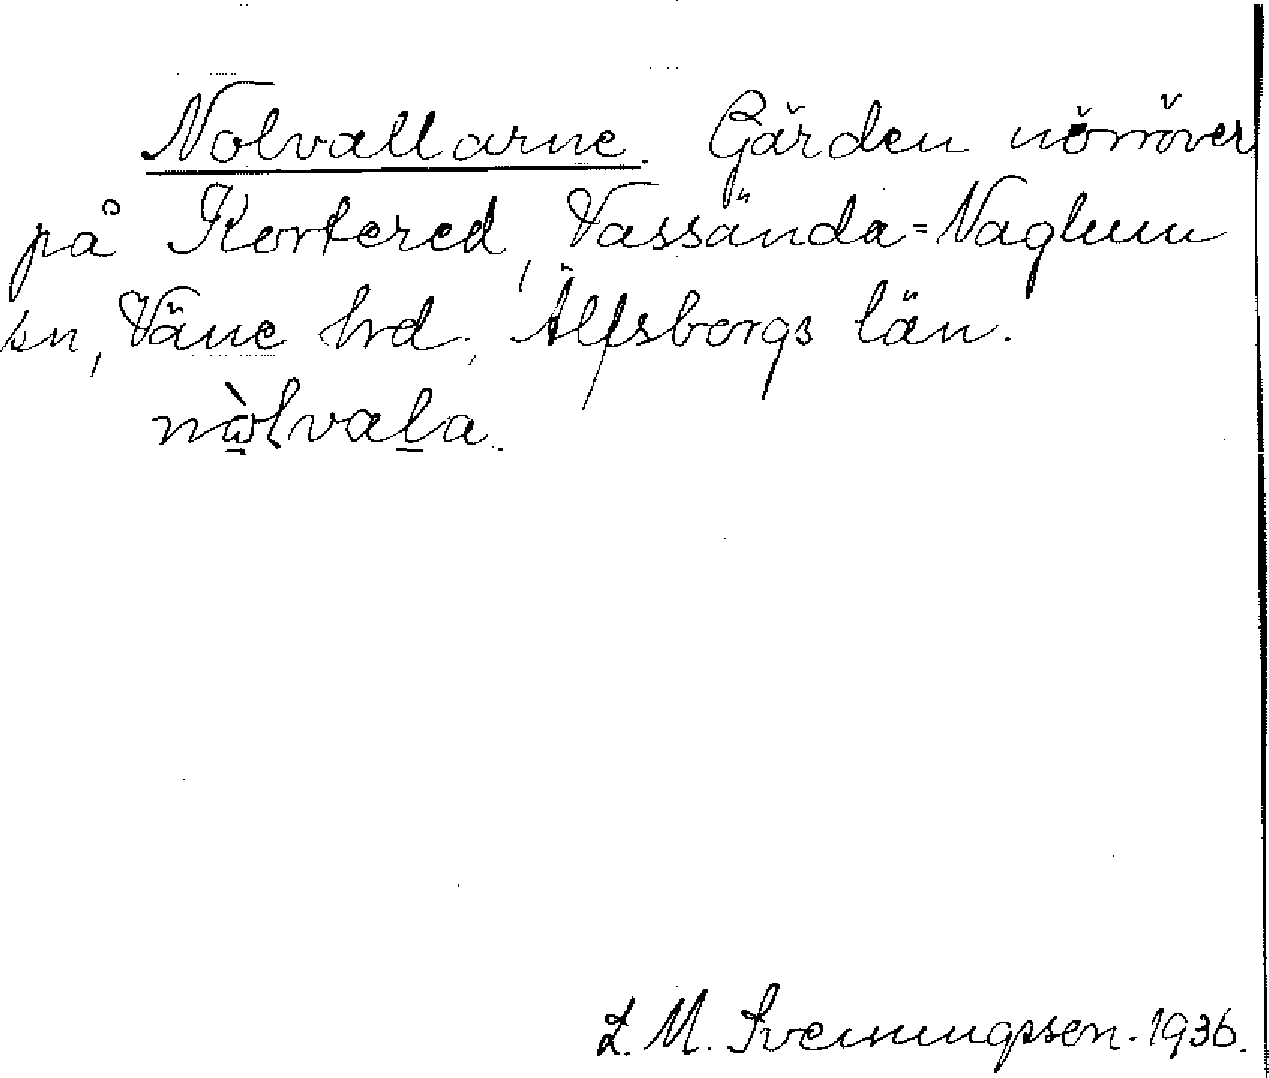 Nolvallarne. Gärden nörröver
på Kortered, Vassända-Naglum
sn, Väne hrd., Älfsborgs län.
nòlvaḻa.
L. M. Svenungsson. 1936.